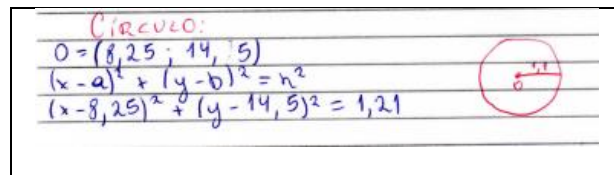 CÍRCULO:
O = (8,25 ; 14, 5)
(x-a)² + (y-b)² = r²
(x-8,25)² + (y-14,5)² = 1,21
1,1
O